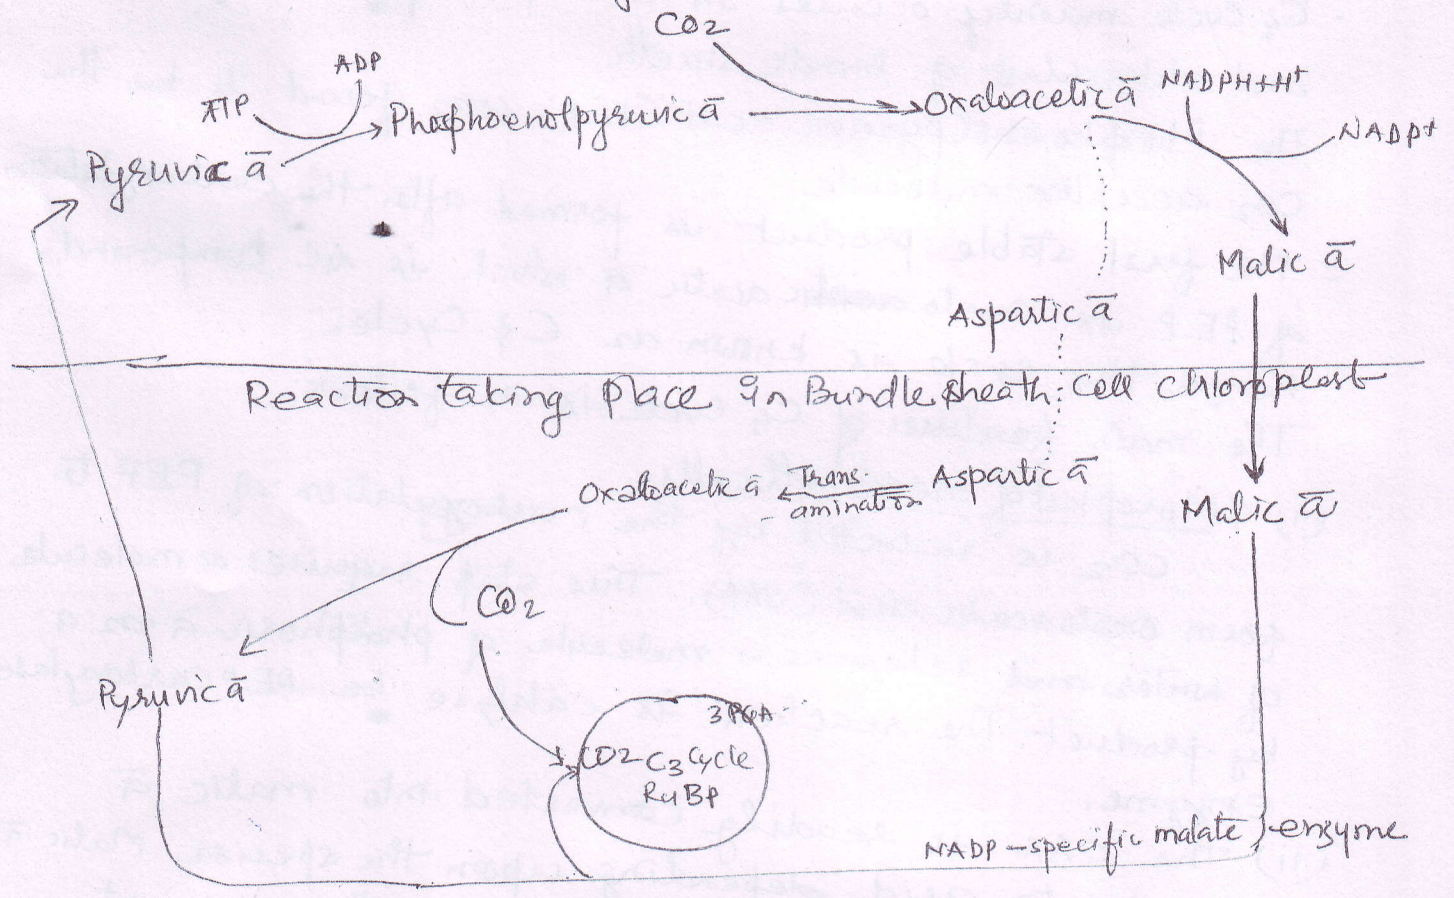 CO2
ADP
ATP
Phosphoenolpyruvic ā
Oxaloacetic ā
NADPH+H+
NADP+
Pyruvic ā
Malic ā
Aspartic ā
Reaction taking Place in Bundle sheath cell chloroplast
Oxaloacetic ā
Trans-
amination
Aspartic ā
Malic ā
CO2
Pyruvic ā
3PGA
CO2 C3 Cycle
RuBP
NADP-specific malate enzyme